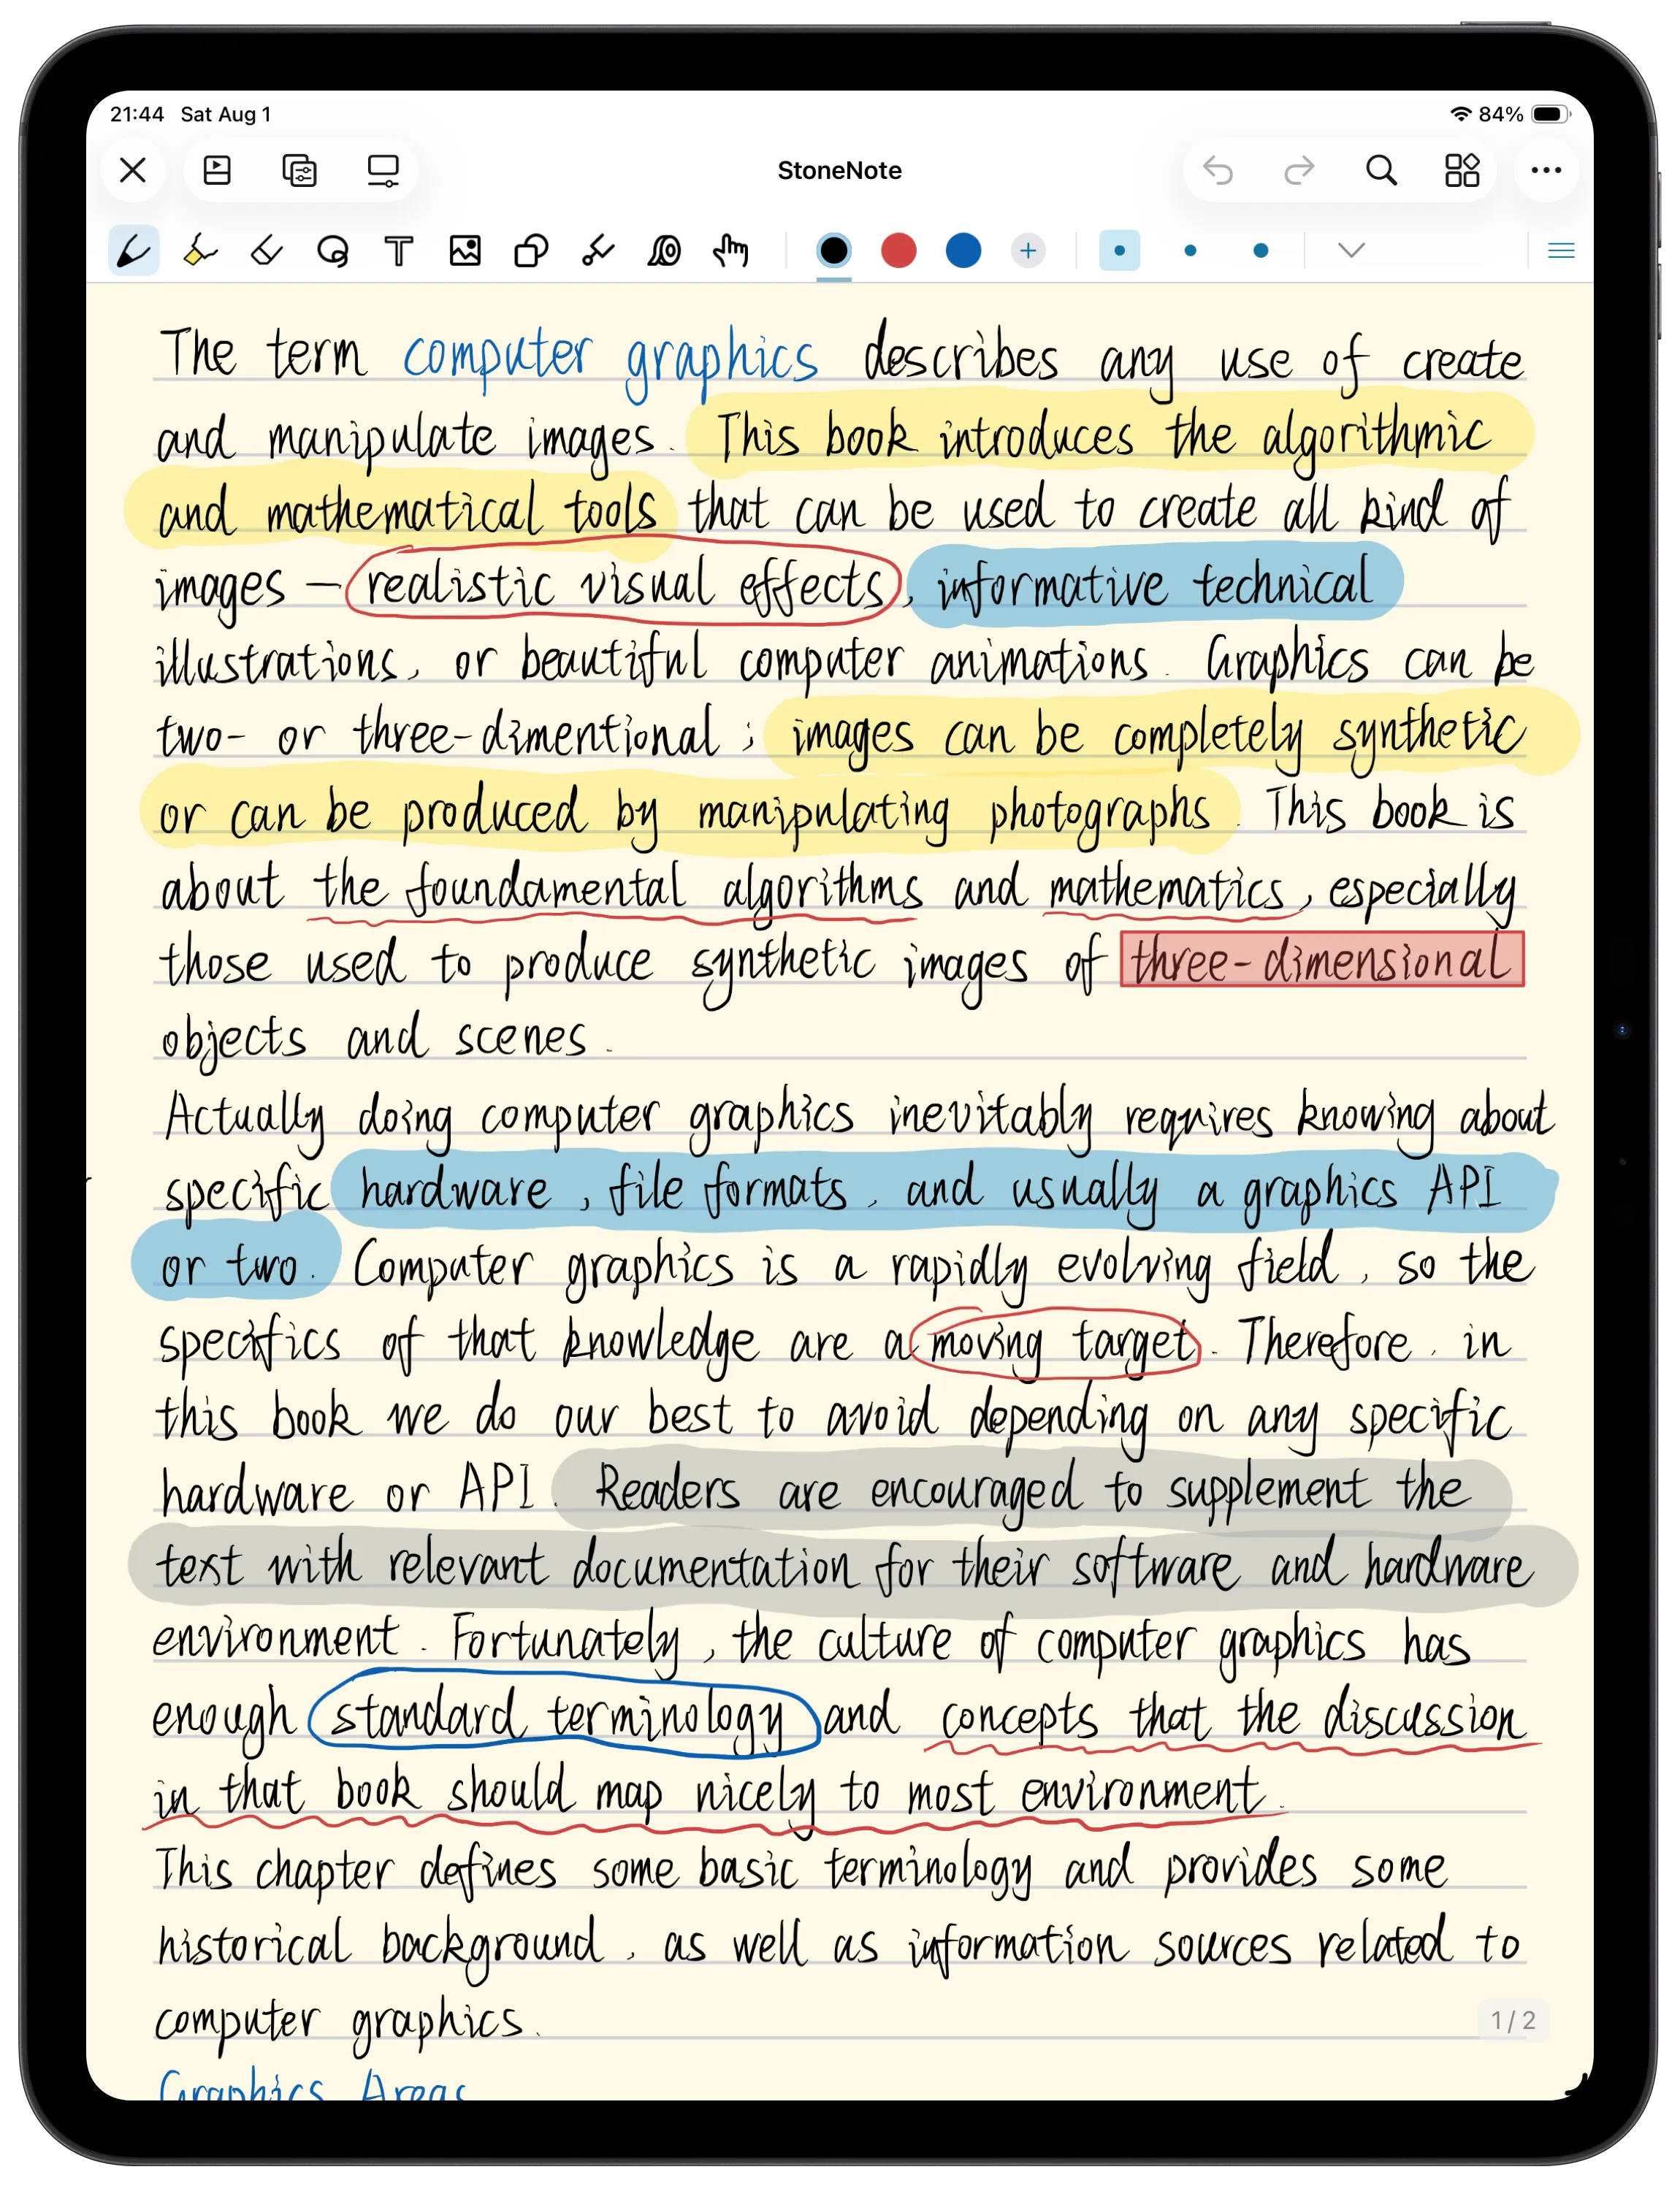 21:44 Sat Aug 1 84%
StoneNote
The term computer graphics describes any use of create
and manipulate images. This book introduces the algorithmic
and mathematical tools that can be used to create all kind of
images — realistic visual effects, informative technical
illustrations, or beautiful computer animations. Graphics can be
two- or three-dimentional; images can be completely synthetic
or can be produced by manipulating photographs. This book is
about the foundamental algorithms and mathematics, especially
those used to produce synthetic images of three-dimensional
objects and scenes.
Actually doing computer graphics inevitably requires knowing about
specific hardware, file formats, and usually a graphics API
or two. Computer graphics is a rapidly evolving field, so the
specifics of that knowledge are a moving target. Therefore, in
this book we do our best to avoid depending on any specific
hardware or API. Readers are encouraged to supplement the
text with relevant documentation for their software and hardware
environment. Fortunately, the culture of computer graphics has
enough standard terminology and concepts that the discussion
in that book should map nicely to most environment.
This chapter defines some basic terminology and provides some
historical background, as well as information sources related to
computer graphics.
1/2
Graphics Areas